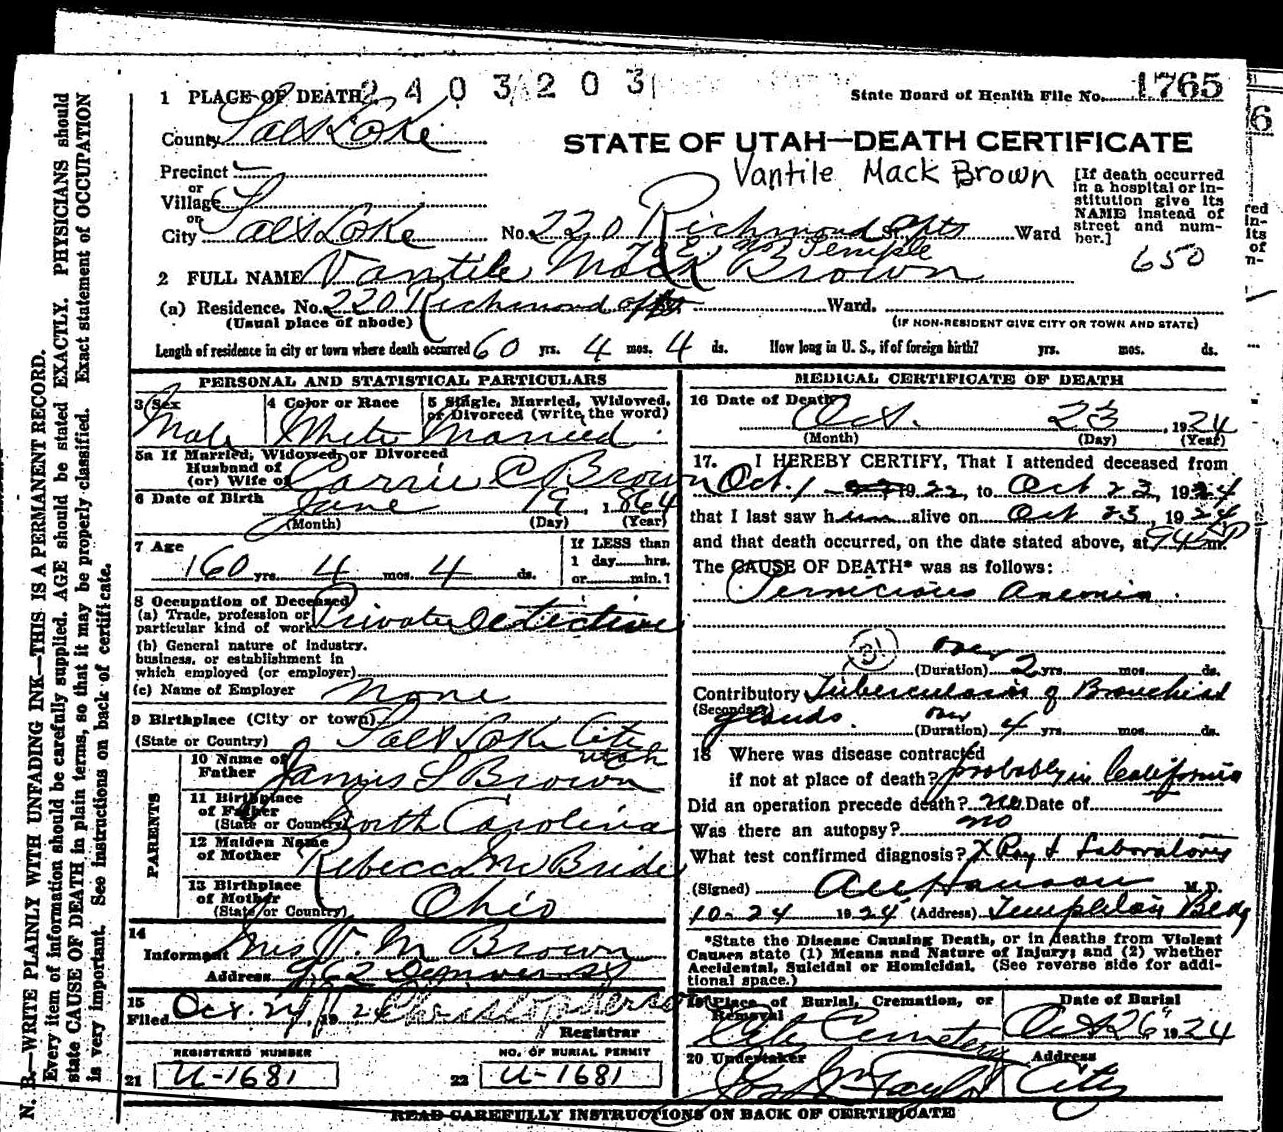 2403203
1 PLACE OF DEATH
State Board of Health File No. 1765
County Salt Lake
STATE OF UTAH—DEATH CERTIFICATE
Precinct
Vantile Mack Brown
or
Village
or
City Salt Lake No. 220 Richmond Apts Ward
[If death occurred
in a hospital or in-
stitution give its
NAME instead of
street and num-
ber.]
650
No Temple
2 FULL NAME Vantile Mack Brown
(a) Residence. No. 220 Richmond apts Ward.
(Usual place of abode)
(IF NON-RESIDENT GIVE CITY OR TOWN AND STATE)
Length of residence in city or town where death occurred 60 yrs. 4 mos. 4 ds. How long in U. S., if of foreign birth? yrs. mos. ds.
PERSONAL AND STATISTICAL PARTICULARS
3 Sex
Male
4 Color or Race
White
5 Single, Married, Widowed,
or Divorced (write the word)
Married
5a If Married, Widowed, or Divorced
Husband of
(or) Wife of Carrie C Brown
6 Date of Birth June 19, 1864
(Month) (Day) (Year)
7 Age
60 yrs. 4 mos. 4 ds.
If LESS than
1 day hrs.
or min.?
8 Occupation of Deceased
(a) Trade, profession or
particular kind of work Private Detective
(b) General nature of industry,
business, or establishment in
which employed (or employer)
(c) Name of Employer none
9 Birthplace (City or town)
(State or Country) Salt Lake City
Utah
PARENTS
10 Name of
Father James S Brown
11 Birthplace
of Father
(State or Country) North Carolina
12 Maiden Name
of Mother Rebecca McBride
13 Birthplace
of Mother
(State or Country) Ohio
14
Informant Mrs V. M Brown
Address
15
Filed Oct. 24 1924
Registrar
REGISTERED NUMBER
21 U-1681
NO. OF BURIAL PERMIT
22 U-1681
MEDICAL CERTIFICATE OF DEATH
16 Date of Death
Oct. 23, 1924
(Month) (Day) (Year)
17. I HEREBY CERTIFY, That I attended deceased from
Oct. 1 1922, to Oct 23, 1924
that I last saw him alive on Oct 23, 1924
and that death occurred, on the date stated above, at m.
The CAUSE OF DEATH* was as follows:
Pernicious anemia.
over
(Duration) 2 yrs. mos. ds.
Contributory Tuberculosis of Bronchial
(Secondary)
glands. over
(Duration) 4 yrs. mos. ds.
18 Where was disease contracted
if not at place of death? probably in California
Did an operation precede death? no Date of
Was there an autopsy? no
What test confirmed diagnosis? X Ray & Laboratory
(Signed) M.D.
10-24 1924 (Address) Templeton Bldg
*State the Disease Causing Death, or in deaths from Violent
Causes state (1) Means and Nature of Injury; and (2) whether
Accidental, Suicidal or Homicidal. (See reverse side for addi-
tional space.)
19 Place of Burial, Cremation, or
Removal
City Cemetery
Date of Burial
Oct 26 1924
20 Undertaker
Jos Wm Taylor
Address
City
READ CAREFULLY INSTRUCTIONS ON BACK OF CERTIFICATE
N. B.—WRITE PLAINLY WITH UNFADING INK—THIS IS A PERMANENT RECORD.
Every item of information should be carefully supplied. AGE should be stated EXACTLY. PHYSICIANS should
state CAUSE OF DEATH in plain terms, so that it may be properly classified. Exact statement of OCCUPATION
is very important. See instructions on back of certificate.